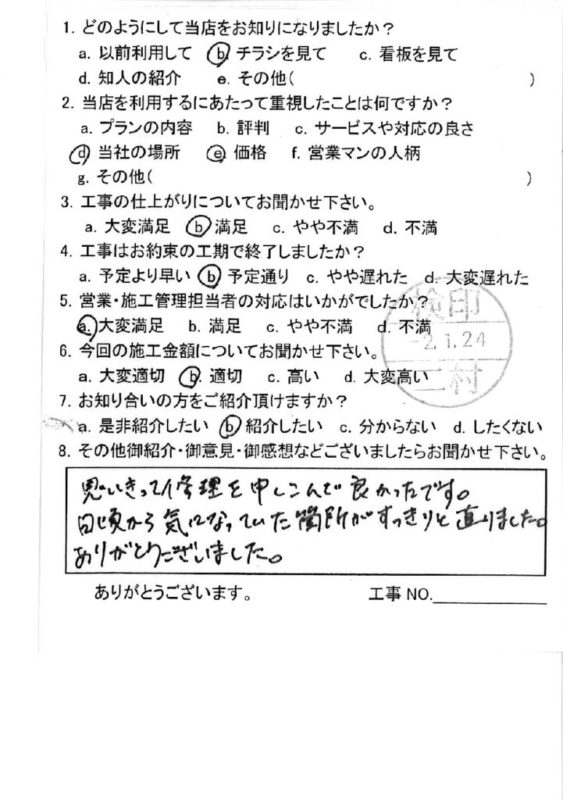 1. どのようにして当店をお知りになりましたか？
a. 以前利用して b. チラシを見て c. 看板を見て
d. 知人の紹介 e. その他( )
2. 当店を利用するにあたって重視したことは何ですか？
a. プランの内容 b. 評判 c. サービスや対応の良さ
d. 当社の場所 e. 価格 f. 営業マンの人柄
g. その他( )
3. 工事の仕上がりについてお聞かせ下さい。
a. 大変満足 b. 満足 c. やや不満 d. 不満
4. 工事はお約束の工期で終了しましたか？
a. 予定より早い b. 予定通り c. やや遅れた d. 大変遅れた
5. 営業・施工管理担当者の対応はいかがでしたか？
a. 大変満足 b. 満足 c. やや不満 d. 不満
6. 今回の施工金額についてお聞かせ下さい。
a. 大変適切 b. 適切 c. 高い d. 大変高い
検印
-2.1.24
二村
7. お知り合いの方をご紹介頂けますか？
a. 是非紹介したい b. 紹介したい c. 分からない d. したくない
8. その他御紹介・御意見・御感想などございましたらお聞かせ下さい。
思いきって修理を申しこんで良かったです。
日頃から気になっていた箇所がすっきりと直りました。
ありがとうございました。
ありがとうございます。 工事 NO.